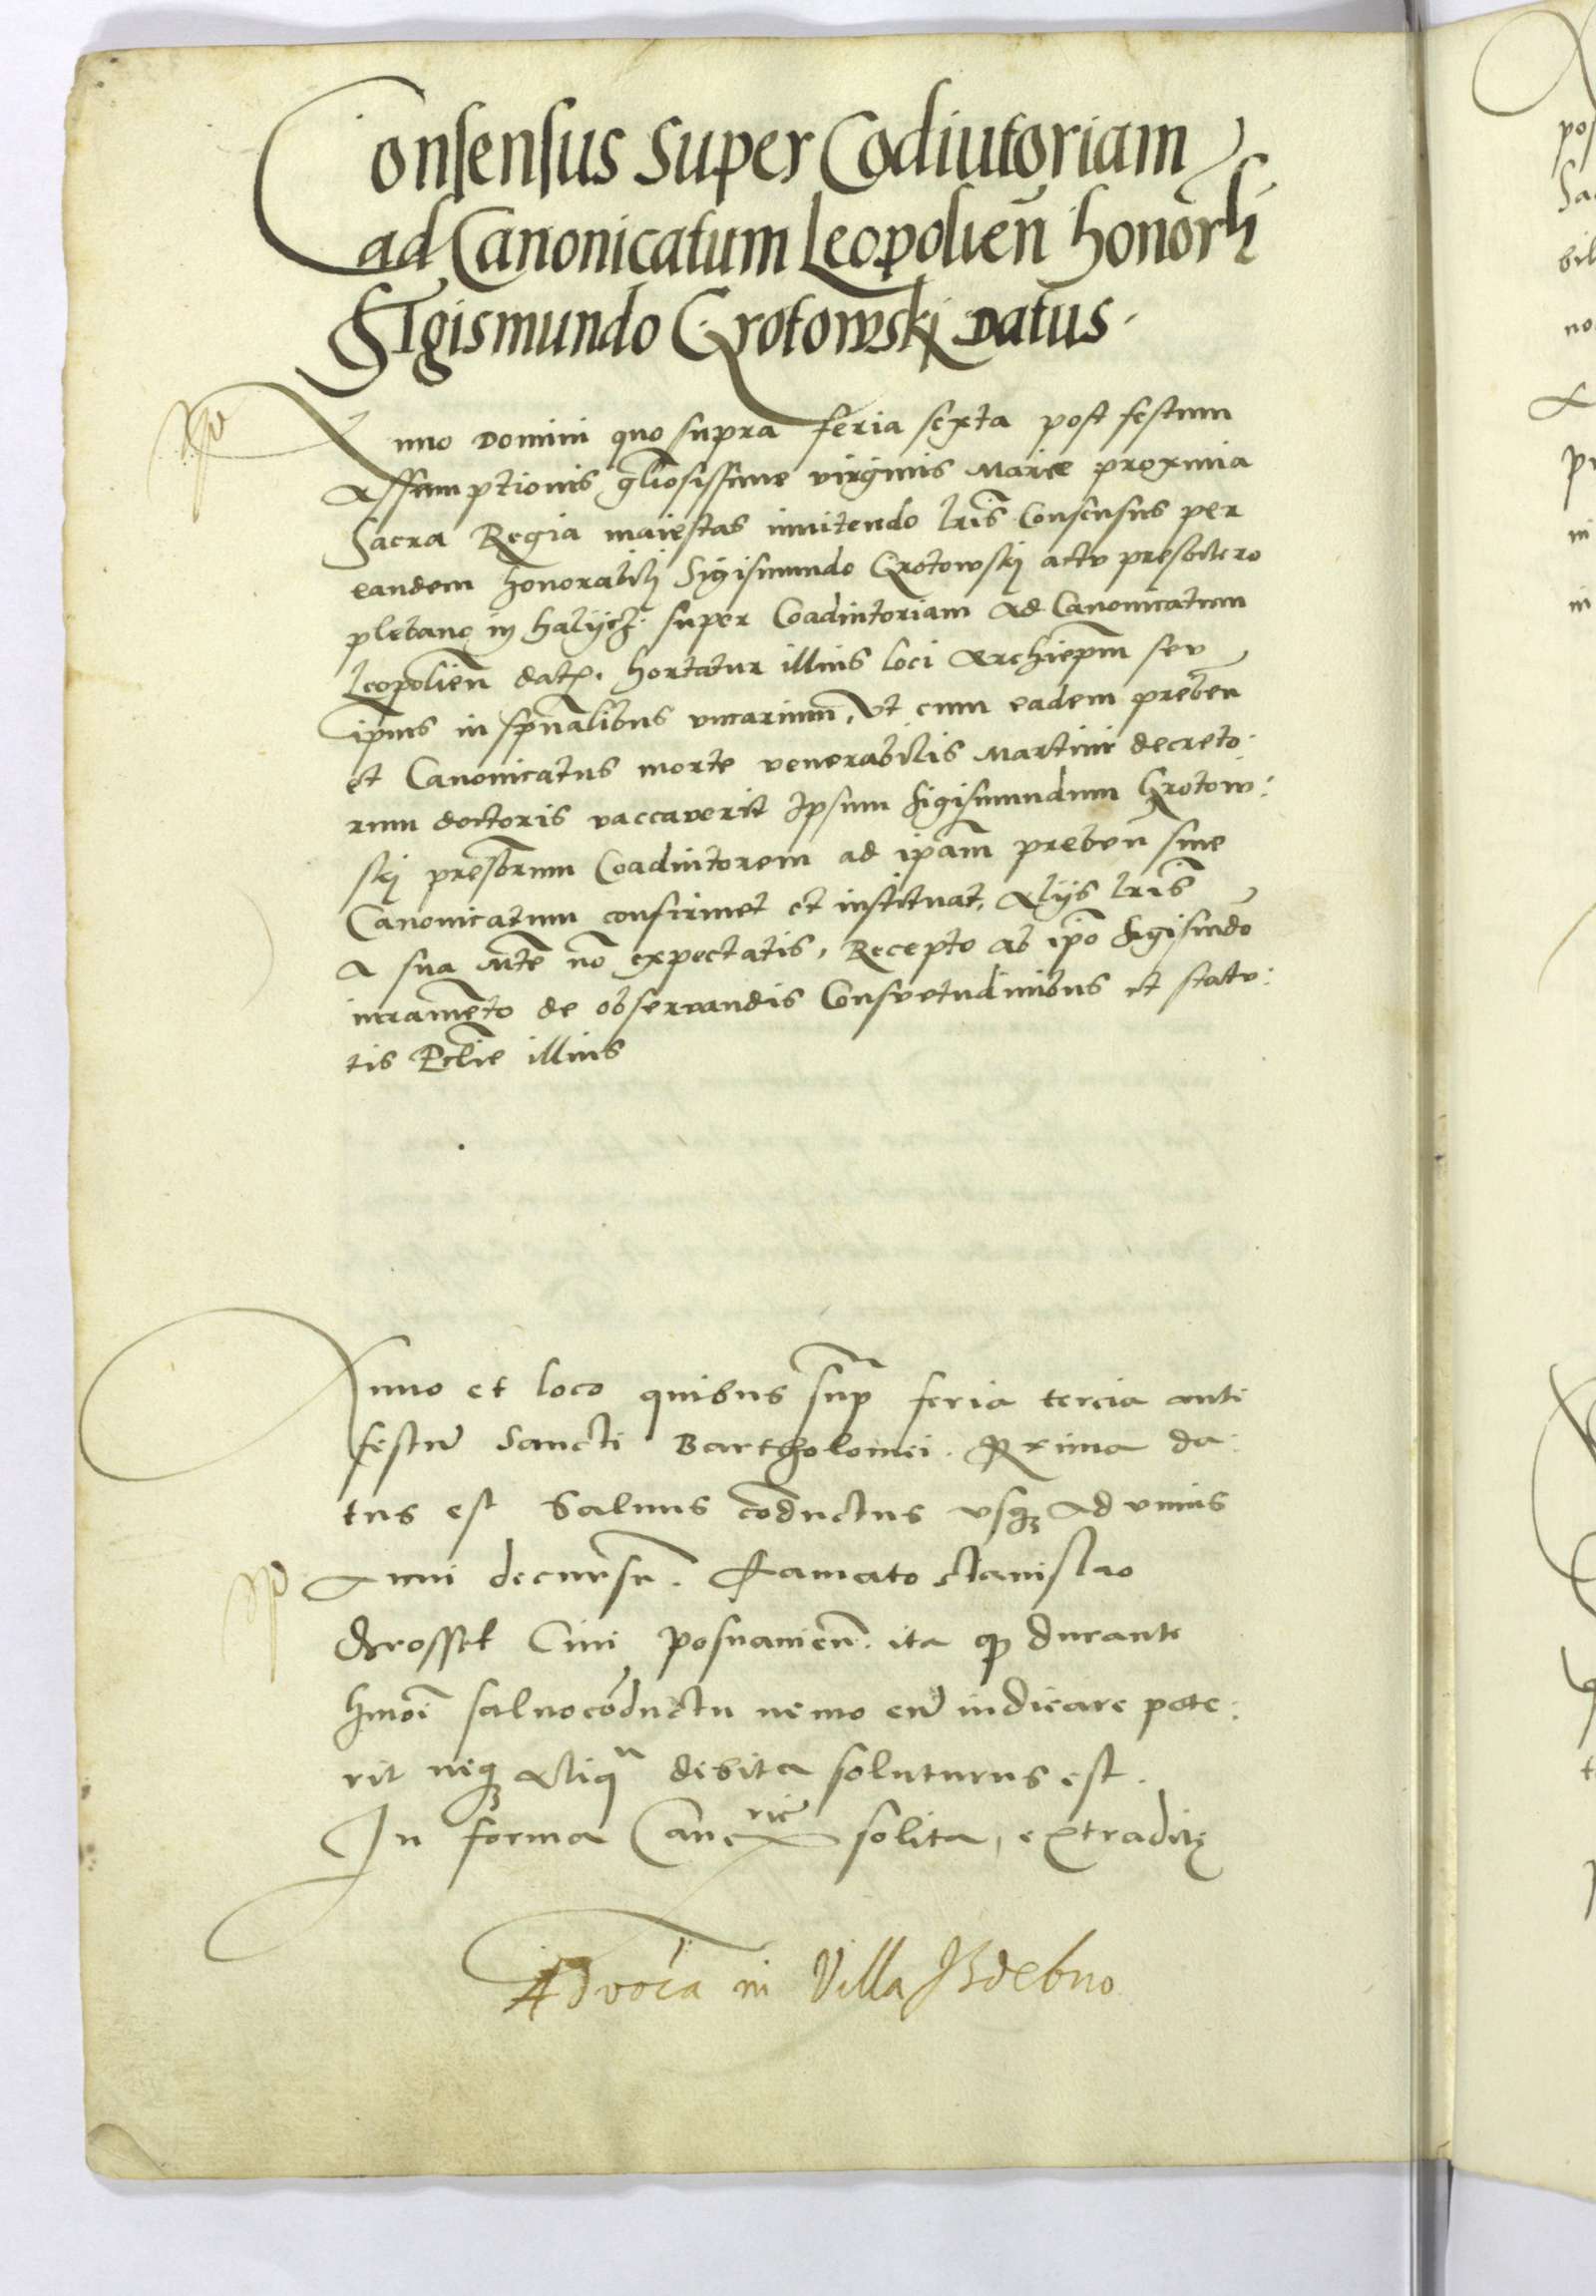 Consensus super Codiutoriam
ad Canonicatum Leopolien̄ honorli
Sigismundo Grotowskj Datus.
Anno Domini quo supra feria sexta post festum
Assumptionis glīosissime virginis Marie proxima
Sacra Regia maiestas innitendo lris̄ Consensus per
eandem honorabilj Sigismundo Grotowskj actu presbitero
plebano in halijcz super Coadiutoriam ad Canonicatum
Leopolien̄ dat. hortatur illius loci Archiepm̄ seu
ipius in spūalibus vicarium, Ut cum eadem preben̄
et Canonicatus morte venerabilis Martini decreto:
rum doctoris vaccaverit Ipsum Sigismundum Grotow:
skj presbrum Coadiutorem ad ipam̄ preben̄ siue
Canonicatum confirmet et instituat, Alijs lris̄
a sua Mte nō expectatis, Recepto ab ipō Sigismdo
iuramēto de obseruandis Consvetudinibus et statu:
tis Eclīe illius
Anno et loco quibus sup̄ feria tercia ante
festū Sancti Bartholomei. Proxima da:
tus est Saluus cōductus vsq̨ ad vnius
Anni decursū. Famato Stanislao
Grosset Ciui posnanien̄. ita q̨ durante
hmoī saluocōductu nemo eū iudicare pote:
rit neq̨ aliqa debita soluturus est.
In forma Cancrie solita, extradit̨
Advoca in Villa Isdebno